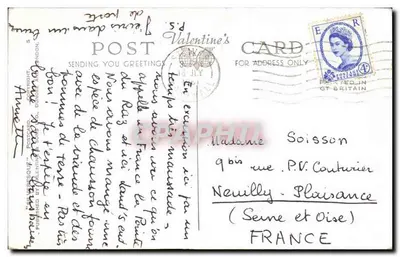 P.S.
J'écris dans un bureau
de poste
POST
Valentine's
CARD
SENDING YOU GREETINGS
FOR ADDRESS ONLY
E R
POSTAGE
PRINTED IN
GT BRITAIN
En excursion ici par un
temps très maussade.
nous avons vu ce qu'on
appelle en France la Pointe
du Raz et ici Land's End.
Nous avons mangé une
espèce de chausson fourré
avec de la viande et des
pommes de terre - Pas très
bon! Je t'espère en
bonne santé. Bons baisers
Annette
Madame Soisson
9 bis rue P.V. Couturier
Neuilly-Plaisance
(Seine et Oise)
FRANCE